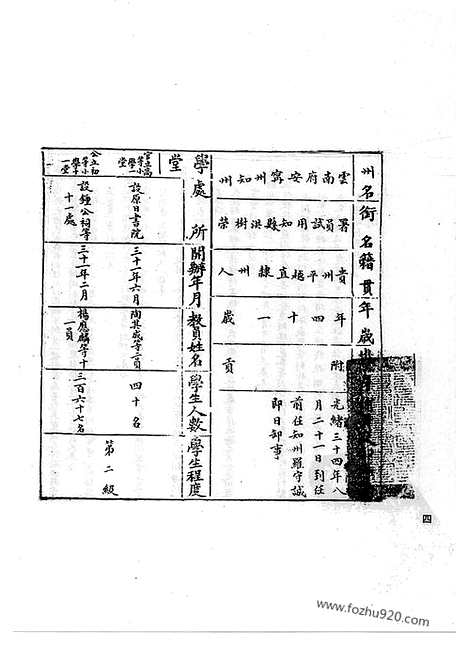 州名 銜名 籍貫 年歲
雲南府安寧州知州
署員試用知縣洪樹榮
貴州平越直隸州人
年四十一歲
附貢
光緒三十四年八
月二十一日到任
前任知州羅守誠
即日卸事
學堂 處所 開辦年月 教員姓名 學生人數 學生程度
官立高等小學一堂 設原日書院 三十一年六月 陶其咸等三員 四十名
公立初等小學十一堂 設鍾公祠等十一處 三十一年二月 楊應麟等十一員 三百六十七名
第二級
四
www.fozhu920.com